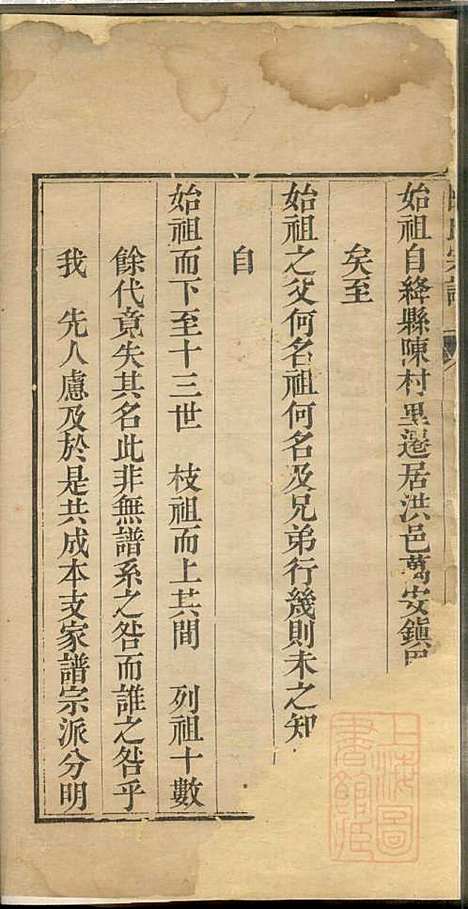 始祖自絳縣陳村里遷居洪邑萬安鎮
矣至
始祖之父何名祖何名及兄弟行幾則未之知
自
始祖而下至十三世 枝祖而上其間 列祖十數
餘代竟失其名此非無譜系之咎而誰之咎乎
我 先人慮及於是共成本支家譜宗派分明
上海圖書館藏